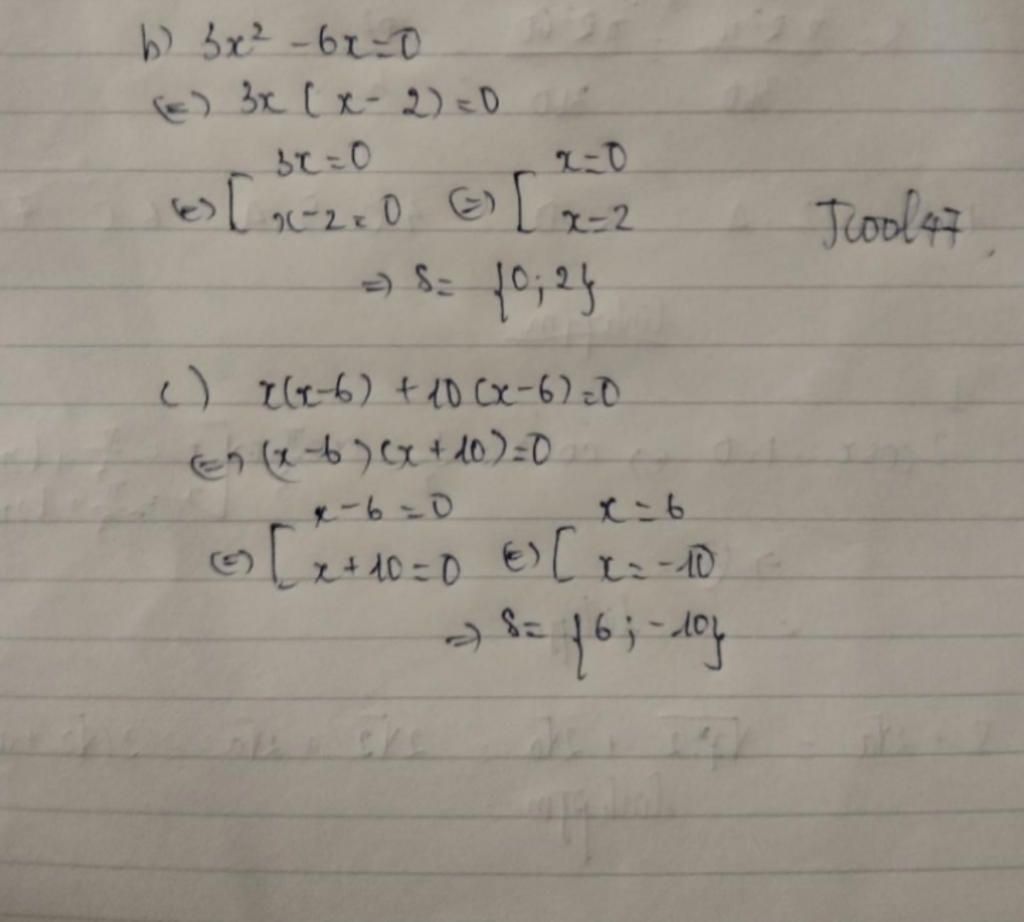 b) 3x² - 6x = 0
(=) 3x (x - 2) = 0
3x = 0 x = 0
(=) [ x - 2 = 0 (=) [ x = 2
Jcool47
=> S = {0; 2}
c) x(x-6) + 10(x-6) = 0
(=) (x-6)(x+10) = 0
x - 6 = 0 x = 6
(=) [ x + 10 = 0 (=) [ x = -10
=> S = {6; -10}